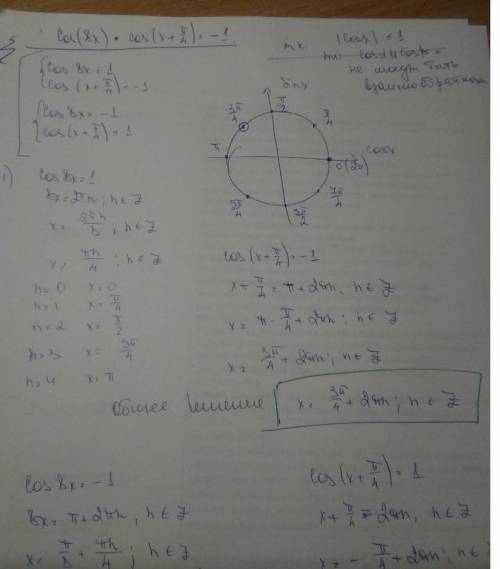 cos(8x) • cos(x+π/4) = -1
т.к. |cos| ≤ 1
то cosα и cosβ
не могут быть
взаимообратн
cos 8x = 1
cos(x+π/4) = -1
cos 8x = -1
cos(x+π/4) = 1
sin x
π/2
3π/4
π/4
π
cos x
0(2π)
5π/4
7π/4
3π/2
1)
cos 8x = 1
8x = 2πn; n ∈ Z
x = 2πn/8; n ∈ Z
x = πn/4; n ∈ Z
n=0 x=0
n=1 x=π/4
n=2 x=π/2
n=3 x=3π/4
n=4 x=π
cos(x+π/4) = -1
x+π/4 = π+2πn, n ∈ Z
x = π-π/4+2πn; n ∈ Z
x = 3π/4+2πn; n ∈ Z
Общее решение
x = 3π/4+2πn; n ∈ Z
cos 8x = -1
8x = π+2πn, n ∈ Z
x = π/8+πn/4; n ∈ Z
cos(x+π/4) = 1
x+π/4 = 2πn, n ∈ Z
x = -π/4+2πn; n ∈ Z